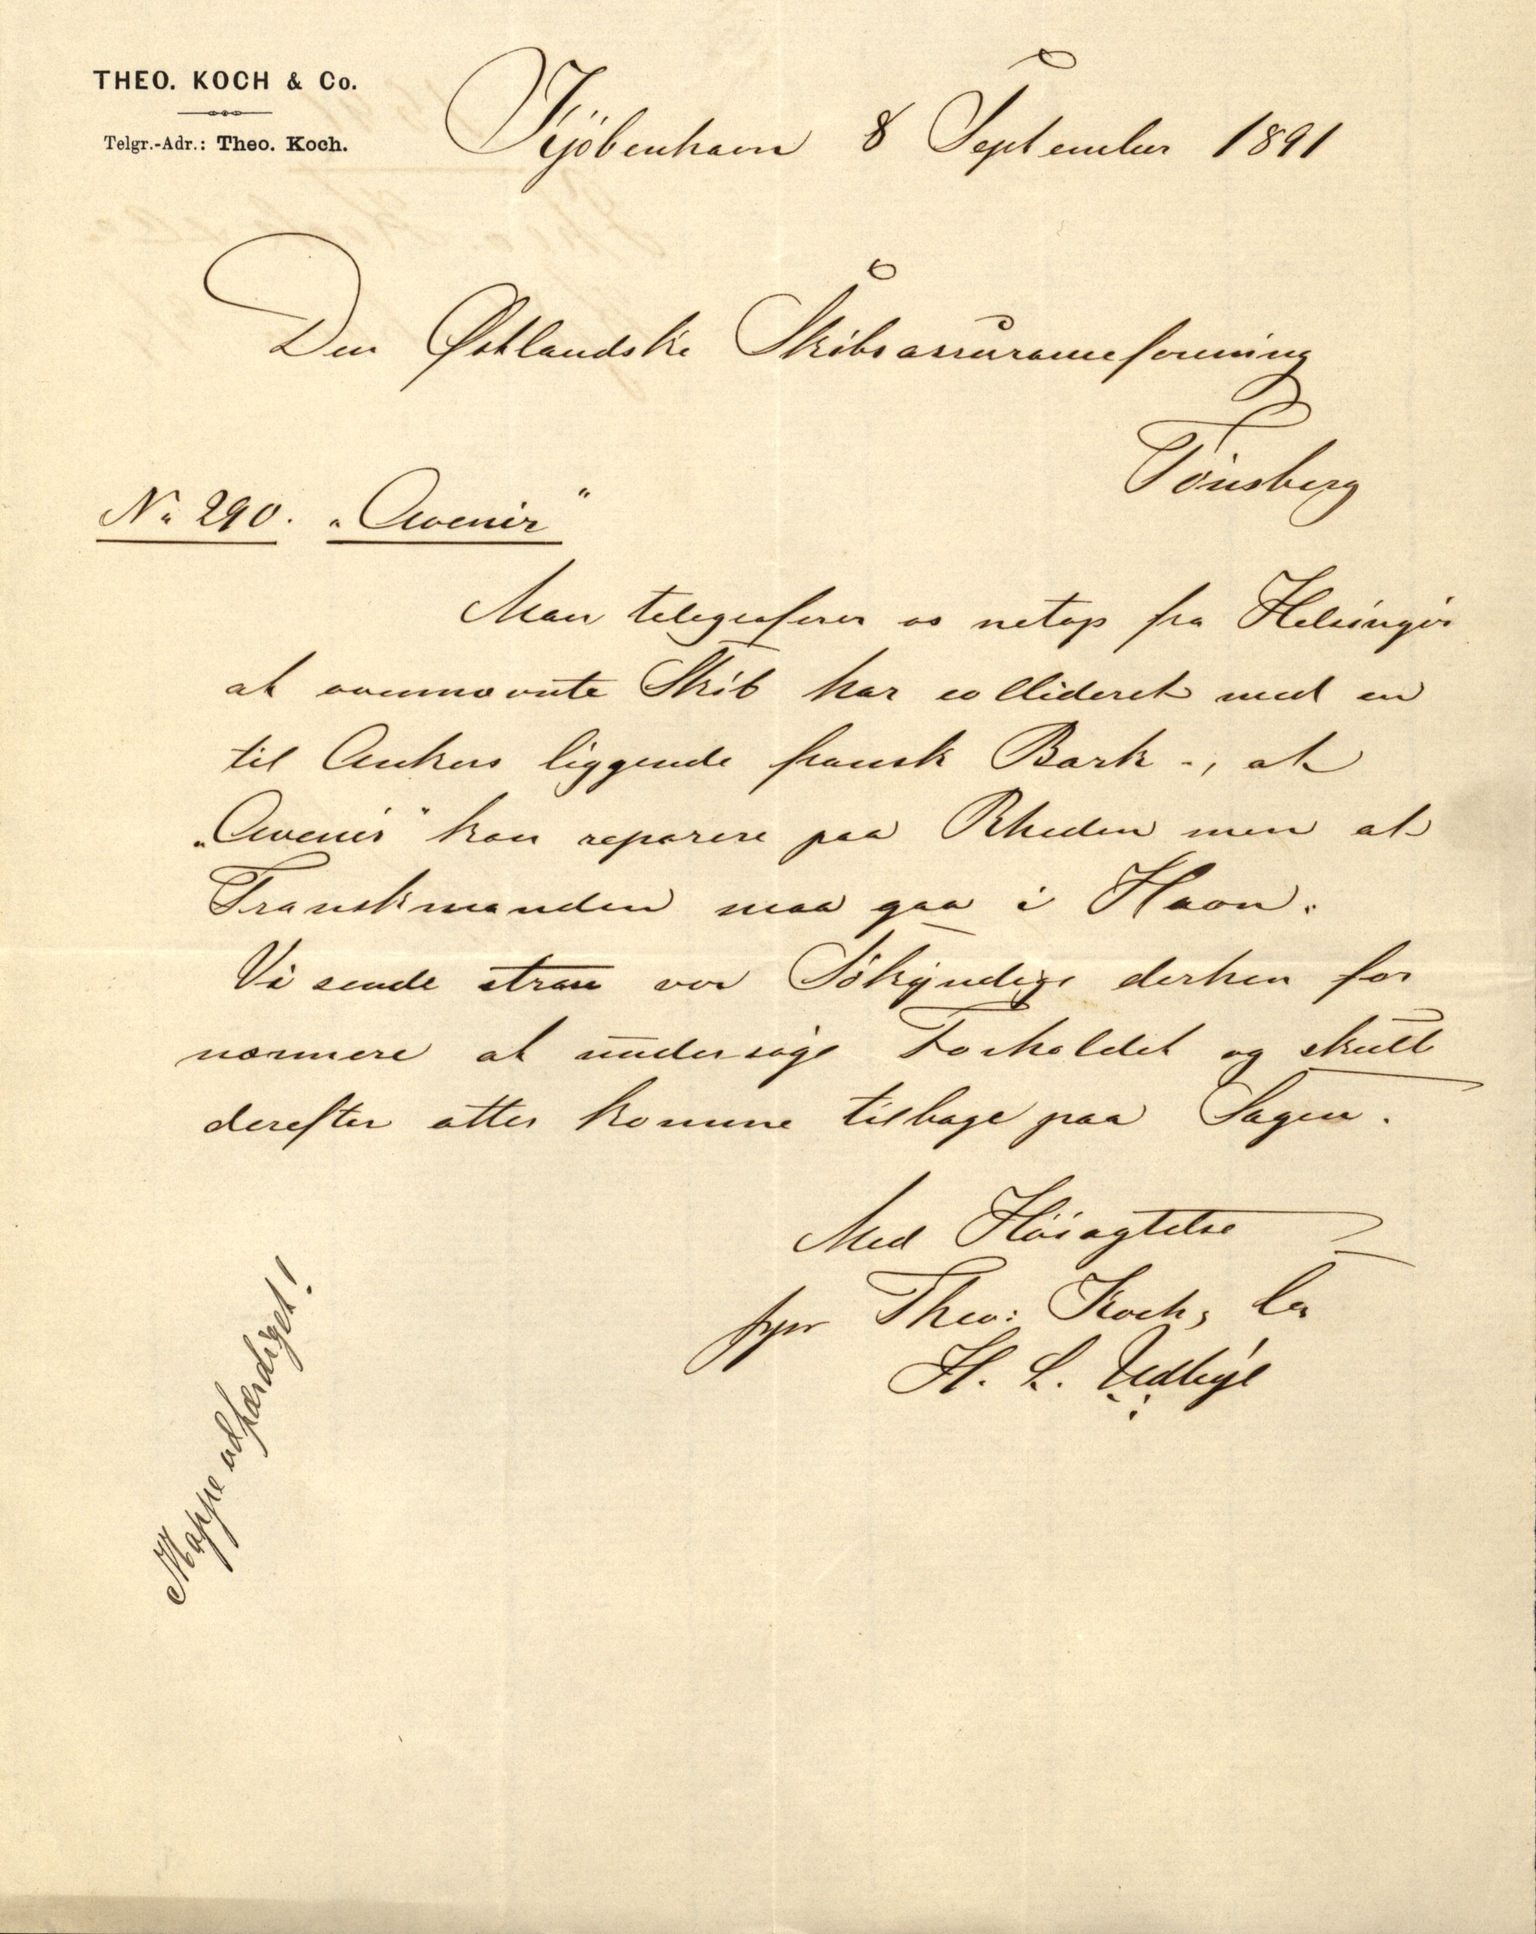 THEO. KOCH & Co.
Telgr.-Adr.: Theo. Koch.
Kjöbenhavn 8 September 1891
Den Østlandske Skibsassuranceforening
Tönsberg
No 290. "Avenir"
Man telegraferer os netop fra Helsingör
at ovennævnte Skib har collideret med en
til Ankers liggende fransk Bark -, at
"Avenir" kan reparere paa Rheden men at
Franskmanden maa gaa i Havn.
Vi sende strax vor Sökyndige derhen for
nærmere at undersöge Forholdet og skulle
derefter atter komme tilbage paa Sagen.
Med Höiagtelse
ppr Theo: Koch & Co
H. L.
Mappe udfærdiget!